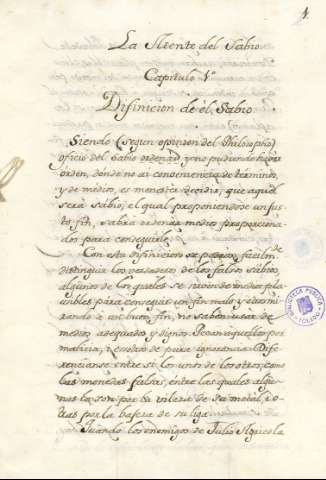 1.
La Mente del Sabio
Capitulo 1º
Difinicion de el Sabio.
Siendo (segun opinion del Philosopho)
oficio del sabio ordenar, y no pudiendo haver
orden, donde no ai consecuencia de terminos,
y de medios, es menester decidir, que aquel
será sabio, el qual proponiendose un jus-
to fin, sabrá ordenar medios proporciona-
dos para conseguirle.
Con esta difinicion se pueden facilm.te
distinguir los verdaderos de los falsos sabios,
algunos de los quales se sirven de medios plau-
sibles para conseguir un fin malo y otros mi-
rando à un buen fin, no saben usar de
medios adequados y dignos. Pecan aquellos por
malicia, i estotros de pura ignorancia. Dife-
rencianse entre si los unos de los otros, como
las monedas falsas, entre las quales algu-
nas lo son por la vileza de su metal, i o-
tras por la bajeza de su liga.
Quando los enemigos de Julio Agricola
BIBLIOTECA PUBLICA
TOLEDO